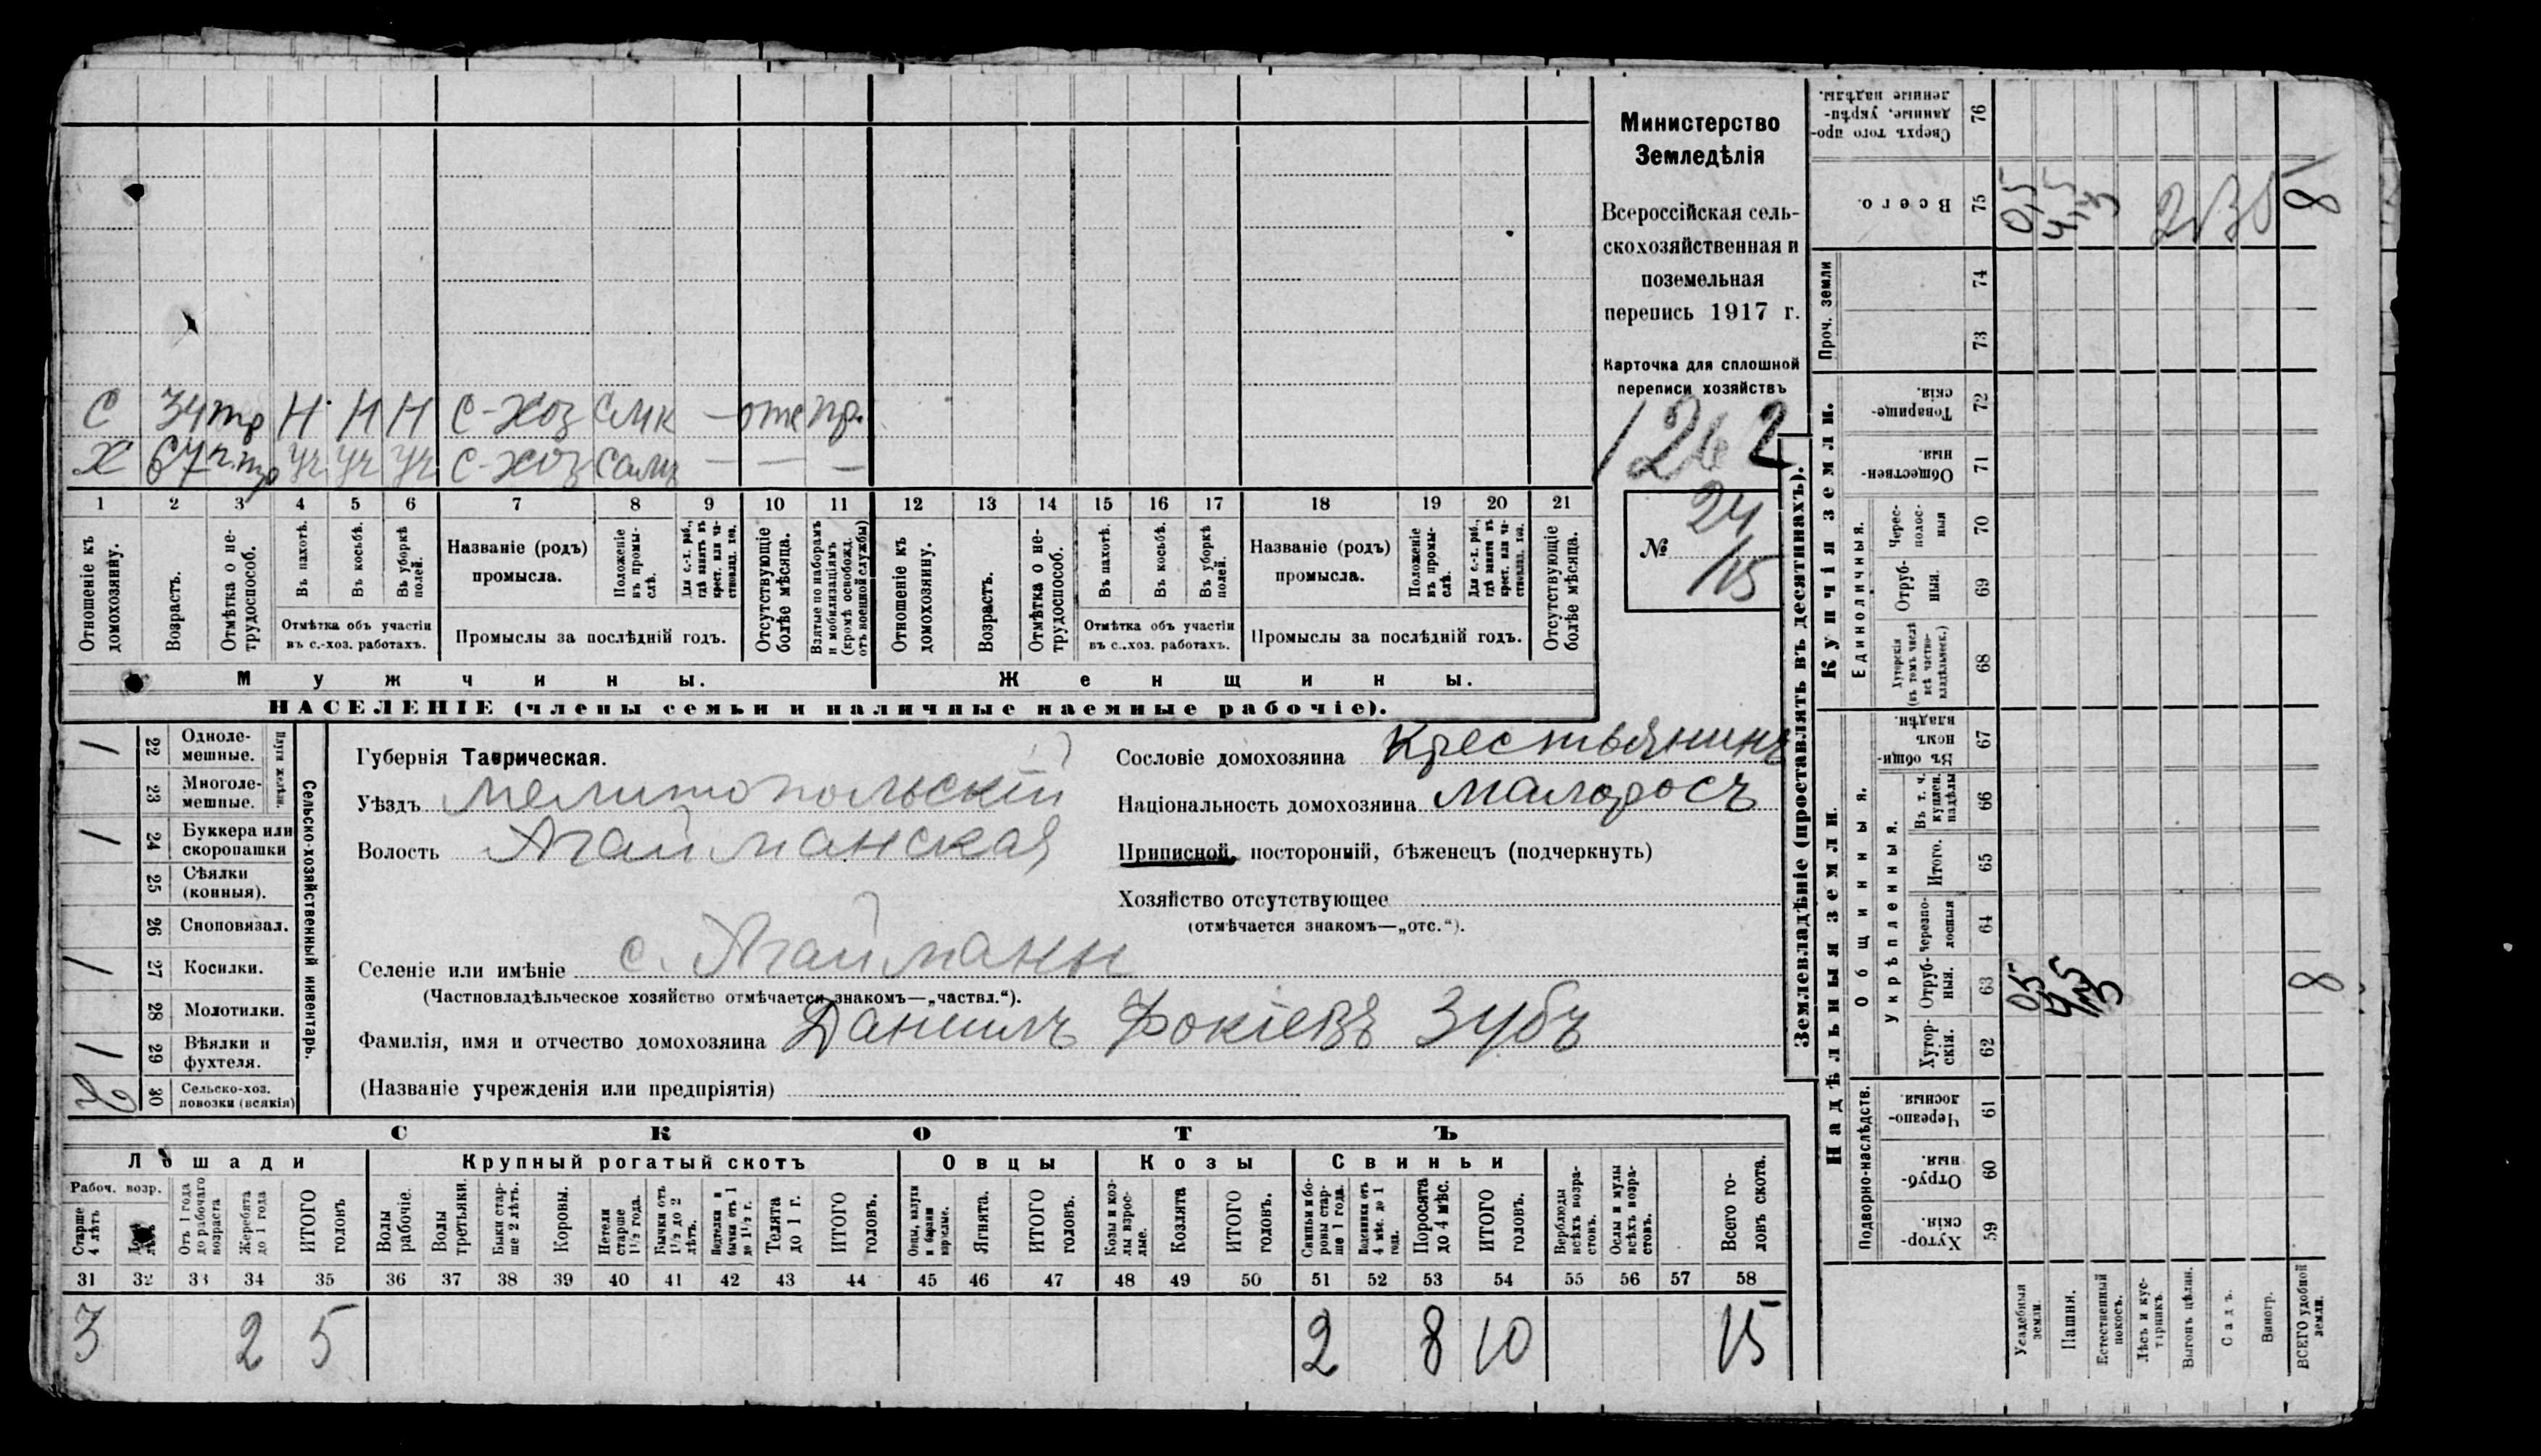 С 34 тр Н Н Н С-хоз — отс
Х 67 п.тр уч уч уч С-хоз — — —
1 2 3 4 5 6 7 8 9 10 11 12 13 14 15 16 17 18 19 20 21
Отношеніе къ домохозяину.
Возрастъ.
Отмѣтка о не-трудоспособ.
Въ пахотѣ.
Въ косьбѣ.
Въ уборкѣ полей.
Отмѣтка объ участіи въ с.-хоз. работахъ.
Названіе (родъ) промысла.
Положеніе въ промы-слѣ.
Для с.-х. раб., гдѣ занятъ въ крест. или ча-стновлад. хоз.
Промыслы за послѣдній годъ.
Отсутствующіе болѣе мѣсяца.
Взятые по наборамъ и мобилизаціямъ (кромѣ освобожд. отъ военной службы)
Отношеніе къ домохозяину.
Возрастъ.
Отмѣтка о не-трудоспособ.
Въ пахотѣ.
Въ косьбѣ.
Въ уборкѣ полей.
Отмѣтка объ участіи въ с.-хоз. работахъ.
Названіе (родъ) промысла.
Положеніе въ промы-слѣ.
Для с.-х. раб., гдѣ занята въ крест. или ча-стновлад. хоз.
Промыслы за послѣдній годъ.
Отсутствующіе болѣе мѣсяца.
Мужчины.
Женщины.
НАСЕЛЕНІЕ (члены семьи и наличные наемные рабочіе).
Министерство
Земледѣлія
Всероссійская сель-
скохозяйственная и
поземельная
перепись 1917 г.
Карточка для сплошной
переписи хозяйствъ
1262
№ 24
15
Сельско-хозяйственный инвентарь.
Плуги желѣзн.
1 22 Одноле-мешные.
23 Многоле-мешные.
1 24 Буккера или скоропашки
25 Сѣялки (конныя).
26 Сноповязал.
1 27 Косилки.
28 Молотилки.
1 29 Вѣялки и фухтеля.
2 30 Сельско-хоз. повозки (всякія)
Губернія Таврическая.
Уѣздъ Мелитопольскій
Волость Агайманская
Селеніе или имѣніе с. Агайманы
(Частновладѣльческое хозяйство отмѣчается знакомъ—„частвл.“).
Фамилія, имя и отчество домохозяина Даніилъ Фокіевъ Зубъ
(Названіе учрежденія или предпріятія)
Сословіе домохозяина Крестьянинъ
Національность домохозяина малоросъ
Приписной, посторонній, бѣженецъ (подчеркнуть)
Хозяйство отсутствующее
(отмѣчается знакомъ—„отс.“).
СКОТЪ
Лошади
Крупный рогатый скотъ
Овцы
Козы
Свиньи
Рабоч. возр.
Старше 4 лѣтъ
Отъ 1 года до рабочаго возраста
Жеребята до 1 года
ИТОГО головъ
Волы рабочіе.
Волы третьяки.
Быки стар-ше 2 лѣтъ.
Коровы.
Нетели старше 1½ года.
Бычки отъ 1½ до 2 лѣтъ.
Подтелки и бычки отъ 1 до 1½ г.
Телята до 1 г.
ИТОГО головъ.
Овцы, валухи и бараны взрослые.
Ягнята.
ИТОГО головъ.
Козы и коз-лы взрос-лые.
Козлята
ИТОГО головъ.
Свиньи и бо-ровы стар-ше 1 года.
Подсвинки отъ 4 мѣс. до 1 года.
Поросята до 4 мѣс.
ИТОГО головъ.
Верблюды всѣхъ возра-стовъ.
Ослы и мулы всѣхъ возра-стовъ.
Всего го-ловъ скота.
31 32 33 34 35 36 37 38 39 40 41 42 43 44 45 46 47 48 49 50 51 52 53 54 55 56 57 58
3 2 5 2 8 10 15
Землевладѣніе (проставлять въ десятинахъ).
Надѣльныя земли.
Купчія земли.
Проч. земли
Подворно-наслѣдств.
Общинныя.
Укрѣпленныя.
Единоличныя.
Сверхъ того про-данные, укрѣп-ленные надѣлы. 76
Всего. 75
74
73
Товарище-скія. 72
Обществен-ныя. 71
Черес-полос-ныя 70
Отруб-ныя. 69
Хуторскія (въ томъ числѣ всѣ частно-владѣльческ.) 68
Въ общин-номъ владѣн. 67
Въ т. ч. куплен. надѣлы 66
Итого. 65
Черезпо-лосныя 64
Отруб-ныя. 63
Хутор-скія. 62
Черезпо-лосныя. 61
Отруб-ныя. 60
Хутор-скія. 59
Усадебныя земли.
Пашня.
Естественный покосъ.
Лѣсъ и кус-тарникъ.
Выгонъ цѣлин.
Садъ.
Виногр.
ВСЕГО удобной земли.
0,5
8
05
8